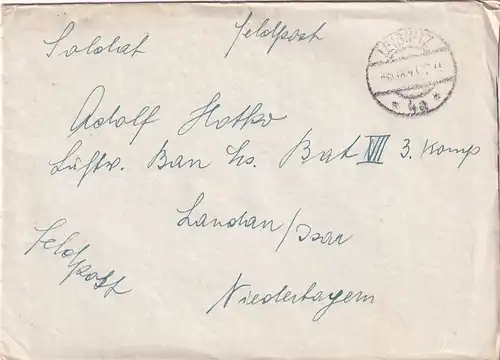 Soldat Feldpost
Adolf Hotko
Luftw. Bau Ers. Bat VII 3. Komp
Landau/Isar
Feldpost
Niederbayern
* 4a *